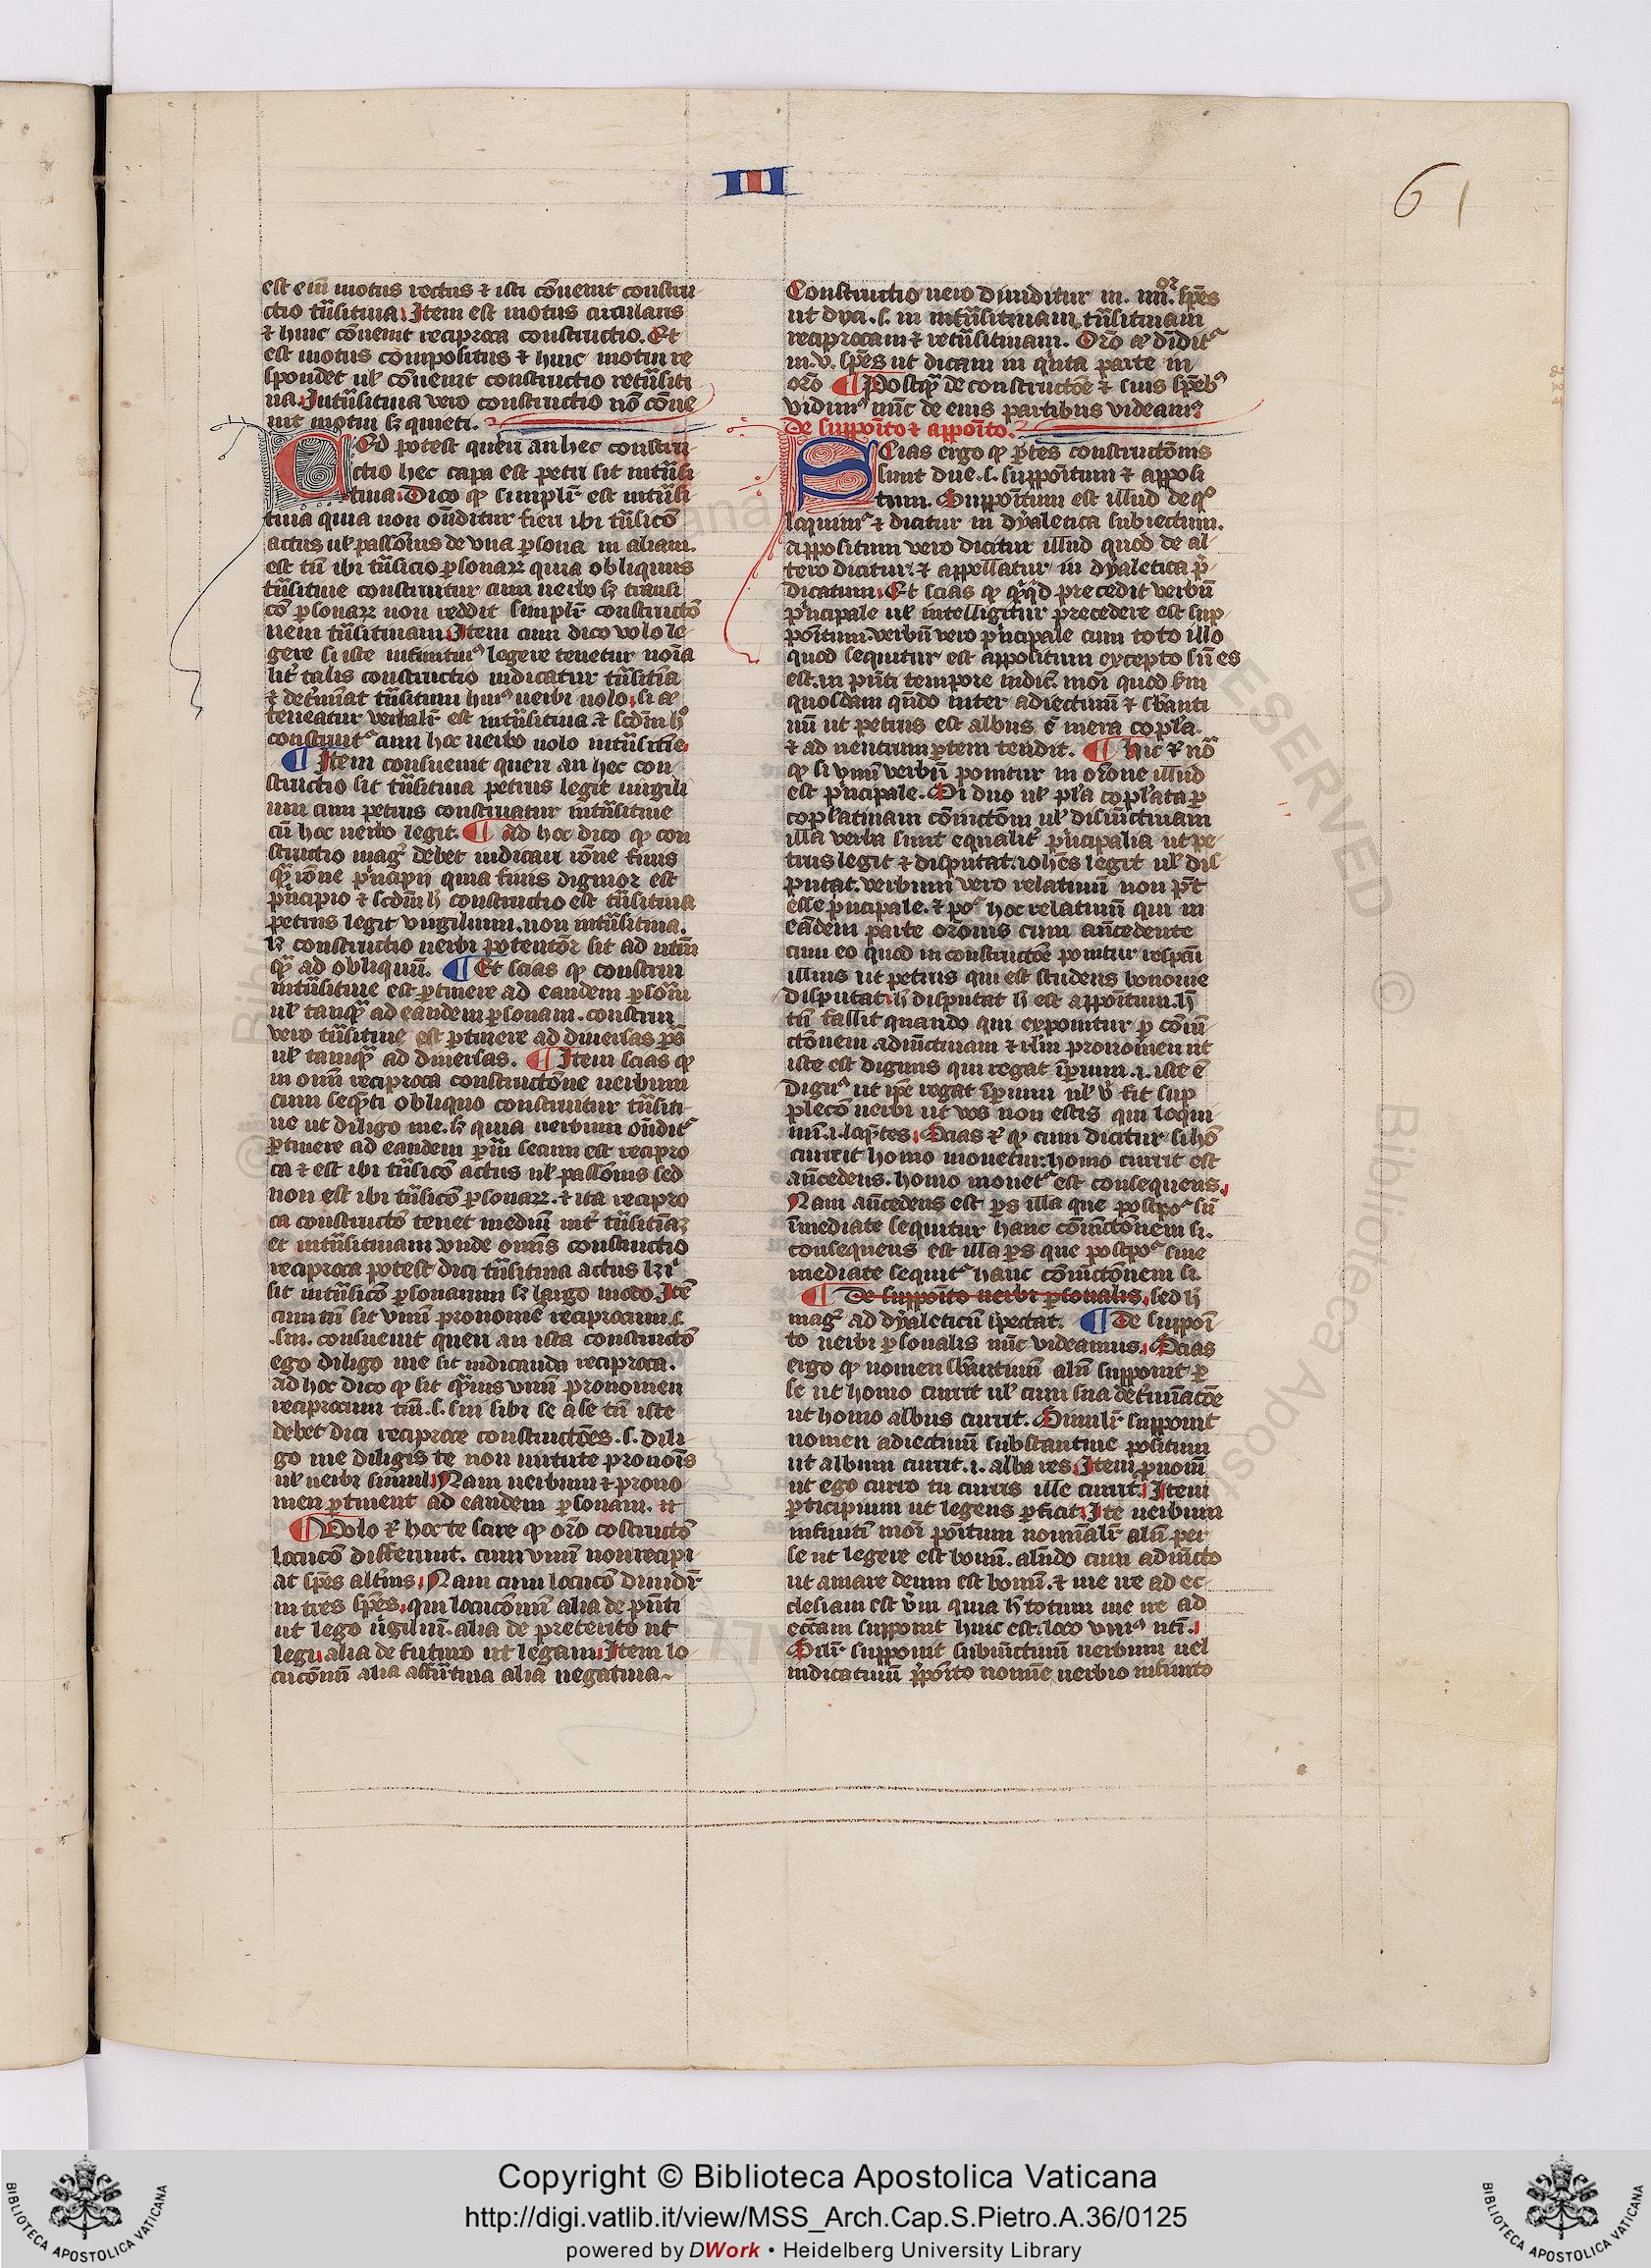 III
61
est eni͞ motus rectus ⁊ isti co͞uenit constru
ctio tn͞sitiua. Item est motus circularis
⁊ huic co͞uenit reciproca constructio. Et
est motus compositus ⁊ huic motui re
spondet ul͛ co͞uenit constructio retn͞siti
ua. Intn͞sitiua vero constructio no͞ co͞ue
nit motui sꝫ quieti.
Ed potest queri an hec constru
ctio hec capa est petri sit intn͞si
tiua. Dico ꝙ simplr͛ est intn͞si
tiua quia non on͞ditur fieri ibi tn͞sico͞
actus ul͛ passio͞nis de vna ꝑsona in aliam.
est tn͞ ibi tn͞sicio ꝑsonaꝝ quia obliquus
tn͞sitiue construitur cum uerbo sꝫ transi
co͞ ꝑsonaꝝ non reddit simplr͛ constructo͞
nem tn͞sitiuam. Item cum dico volo le
gere si iste infinitiuꝰ legere tenetur noi͞a
lit͛ talis constructio iudicatur tn͞siti͞a
⁊ det͛mi͞at tn͞situm huiꝰ uerbi uolo. si aͤ
teneatur verbalr͛ est intn͞sitiua. ⁊ scd͞m hͦ
construit᷑ cum hoc uerbo uolo intn͞sitie.
¶ Item consueuit queri an hec con
structio sit tn͞sitiua petrus legit uirgili
um cum petrus construatur intn͞sitiue
cu͞ hoc uerbo legit. ¶ ad hoc dico ꝙ con
structio mag͛ debet iudicari ro͞ne finis
qͣ͞ ro͞ne pͥncipij quia finis dignior est
pͥncipio ⁊ scd͞m h͛ constructio est tn͞sitiua
petrus legit virgilium. non intn͞sitiua.
sꝫ constructio uerbi potentior͛ sit ad rc͞m
qͣ͞ ad obliquu͞. ¶ Et scias ꝙ construi
intn͞sitiue est ꝑtinere ad eandem ꝑso͞m
ul͛ tanqͣ͞ ad eandem ꝑsonam. construi
vero tn͞sitiue est ꝑtinere ad diuersas ꝑs͞
ul͛ tamqͣ͞ ad diuersas. ¶ Item scias ꝙ
in omni reciproca constructo͞ne uerbum
cum seque͞ti obliquo construitur tn͞siti
ue ut diligo me. sꝫ quia uerbum on͞dit᷑
ꝑtinere ad eandem ꝑso͞m secum est recipro
ca ⁊ est ibi tn͞sico͞ actus ul͛ passo͞nis sed
non est ibi tn͞sico͞ ꝑsonaꝝ. ⁊ ita recipro
ca constructo͞ tenet mediu͞ int͛ tn͞siti͞aꝫ
et intn͞sitiuam vnde omnis constructio
reciproca potest dici tn͞sitiua actus lꝫ i͛
sit intn͞sico͞ ꝑsonarum sꝫ largo modo. Ite͞
cum tn͞ sit vnu͞ pronome͞ reciprocum. s.
.sui. consueuit queri an ista constructo͞
ego diligo me sit iudicanda reciproca.
ad hoc dico ꝙ sit qͣmuis vnu͞ pronomen
reciprocum tm͞. s. sui sibi se a se tn͞ iste
debe͞t dici reciproce constructo͞es. s. dili
go me diligis te non uirtute pronoi͞s
ul͛ uerbi simul. Nam uerbum ⁊ prono
men ꝑtinent ad eandem ꝑsonam.
¶ Volo ⁊͛ hoc te scire ꝙ oro͞ co͞structo͞
locuco͞ differunt. cum vnu͞ non recipi
at spe͞s alt͛ius. Nam cum locuco͞ diuidr͛
in tres spe͞s. qm locuco͞num alia de pn͞ti
ut lego uͥgiliu͞. alia de preterito ut
legi. alia de futuro ut legam. Item lo
cuco͞num alia affirͣtiua alia negatiua
Constructio uero diuiditur in. iiii.ᵒʳ spe͞s
ut dixi. s. in intn͞sitiuam tn͞sitiuam
reciprocam ⁊ retn͞sitiuam. Oro͞ aͤ diuidit᷑
in. v. spe͞s ut dicam in quͥnta parte in
oro͞ ¶ Postqͣ͞ de constructo͞e ⁊ eius spe͞bꝰ
vidimꝰ nu͞c de eius partibus videamꝰ
De suppoi͞to ⁊ appoi͞to.
Cias ergo ꝙ ꝑtes constructo͞nis
sunt due. s. suppoi͞tum ⁊ apposi
tum. Suppoi͞tum est illud de qͦ
loquimr᷑ ⁊ dicitur in dyaletica subiectum.
appositum vero dicitur illud quod de al
tero dicitur. ⁊ appellatur in dyaletica p͛
dicatum. Et scias ꝙ qͥcqͥd precedit verbu͞
pͥncipale ul͛ intelligitur precedere est sup
poi͞tum. verbu͞ vero pͥncipale cum toto illo
quod sequitur est appositum excepto su͞ es
est. in pn͞ti tempore indic͞. moi͞ quod scd͞m
quosdam qn͞do inter adiectiuu͞ et sb͞anti
uu͞ ut petrus est albus e͞ mera copl͛a.
⁊ ad neutrum ꝑtem tendit. ¶ Hic ⁊͛ no͞
ꝙ si vnu͞ verbu͞ ponitur in oro͞ne illud
est pͥncipale. Si duo ul͛ pl͛a copl͛ata ꝑ
copl͛atiuam co͞iucto͞m ul͛ disiu͞ctiuam
illa verba sunt equalit͛ pͥncipalia ut pe
trus legit ⁊ disputat. ioh͞es legit ul͛ dis
putat. verbum vero relatiuu͞ non po͞t
esse pͥncipale. ⁊ poꝰ hoc relatiuu͞ qui in
ea͞dem parte oro͞nis cum an͞cedente
cum eo quod in constructo͞e ponitur respc͞u
illius ut petrus qui est studens bononie
disputat. h͛ disputat h͛ est appoi͞tum. h͛
tn͞ fallit quando qui exponitur ꝑ co͞iu͞
cto͞nem adiu͞ctiuam ⁊ ul͛im pronomen ut
iste est dignus qui regat i͞ꝑium. i. iste e͞
dignꝰ ut ip͞e regat i͞ꝑium ul͛ uͦ fit sup
pleco͞ uerbi ut vos non estis qui loqui
mi͞. i. loque͞tes. Scias ⁊͛ ꝙ cum dicitur si ho͞
currit homo mouetur. homo currit est
an͞cedens. homo mouet᷑ est consequens.
Nam an͞cedens est ꝑs illa que postpoꝰ su͞
i͞mediate sequitur hanc co͞iu͞cto͞nem si.
consequens est illa ꝑs que postpoꝰ siue
mediate sequit᷑ hanc co͞iu͞cto͞nem si.
¶ De suppoi͞to uerbi ꝑsonalis. sed h͛
mag͛ ad dyaleticu͞ spectat. ¶ De suppoi͞
to uerbi ꝑsonalis nu͞c videamus. Scias
ergo ꝙ nomen sb͞antiuu͞ aliu͞ supponit ꝑ
se ut homo currit ul͛ cum sua det͛mi͞aco͞e
ut homo albus currit. Similr͛ supponit
nomen adiectiuu͞ substantiue positum
ut album currit. i. alba res. Item pronom͞
ut ego curro tu curris ille currit. Item
ꝑticipium ut legens ꝑficit. Ite͞ uerbum
infiniti͞ moi͞ poi͞tum nomi͞alr͛ aliu͞ per
se ut legere est bonu͞. aliu͞do cum adiu͞cto
ut amare deum est bonu͞. ⁊ me ire ad ec
clesiam est ve͞m quia h͛ totum me ire ad
ecc͞am supponit huic est. loco vniꝰ nti͞.
Silr͛ supponit subiu͞ctiuum uerbum uel
indicatiuu͞ p͛poi͞to nomi͞e uerbio infinito
Copyright © Biblioteca Apostolica Vaticana
http://digi.vatlib.it/view/MSS_Arch.Cap.S.Pietro.A.36/0125
powered by DWork • Heidelberg University Library
BIBLIOTECA APOSTOLICA VATICANA
BIBLIOTECA APOSTOLICA VATICANA